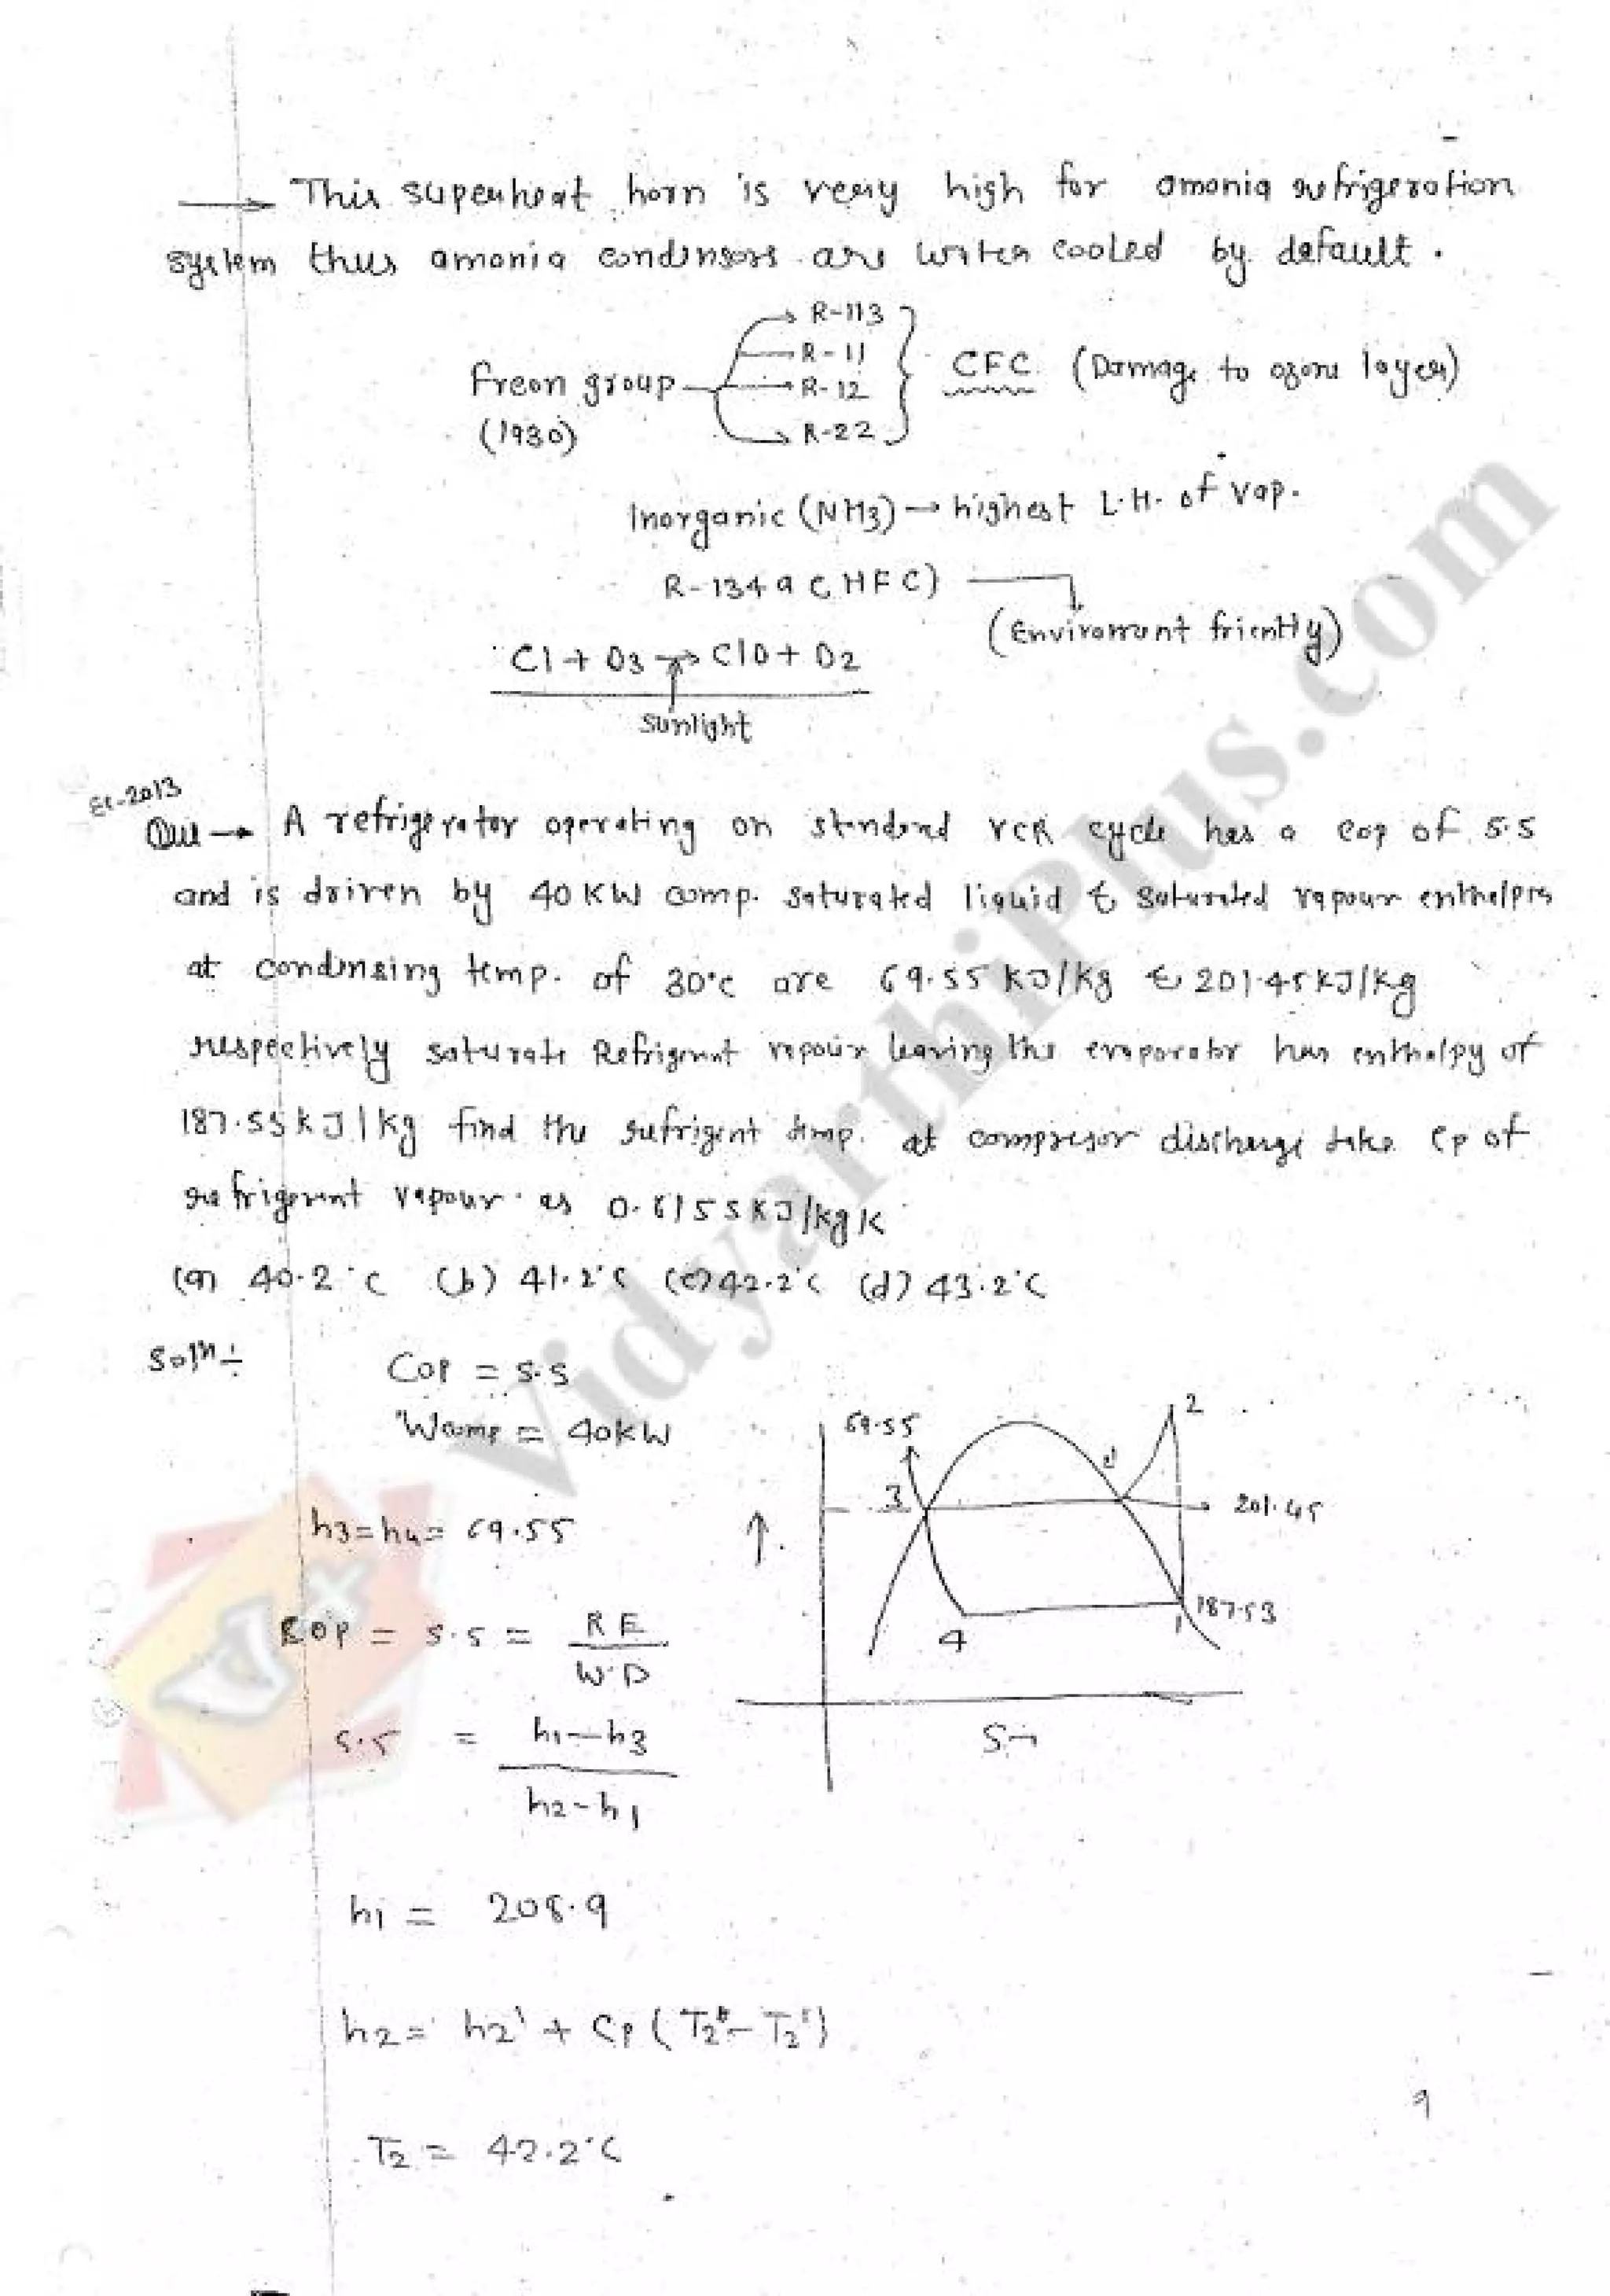 → This superheat horn is very high for amonia refrigeration
system thus amonia condensors are water cooled by default.
Freon group
(1930)
R-113
R-11
R-12
R-22
CFC (Damage to ozone layer)
Inorganic (NH3) → highest L.H. of vap.
R-134a (HFC)
(Enviroment friently)
Cl + O3 → ClO + O2
Sunlight
Que → A refrigerator operating on standard VCR cycle has a cop of 5.5
and is driven by 40KW comp. saturated liquid & saturated vapour enthalpies
at condensing temp. of 30°c are 69.55 KJ/kg & 201.45KJ/Kg
respectively saturate Refrigerent vapour leaving the evaporator has enthalpy of
187.53 kJ/kg find the refrigent temp. at compresor discharge take Cp of
refrigerent vapour as 0.6155KJ/kgK
(a) 40.2°C (b) 41.2°C (c) 42.2°C (d) 43.2°C
Soln:-
COP = 5.5
Wcomp = 40kW
h3=h4= 69.55
COP = 5.5 = RE
W.D
5.5 = h1-h3
h2-h1
69.55
2
2'
3
201.45
187.53
1
4
S→
h1 = 208.9
h2 = h2' + Cp (T2 - T2')
T2 = 42.2°C
9
VidyarthiPlus.com
V+